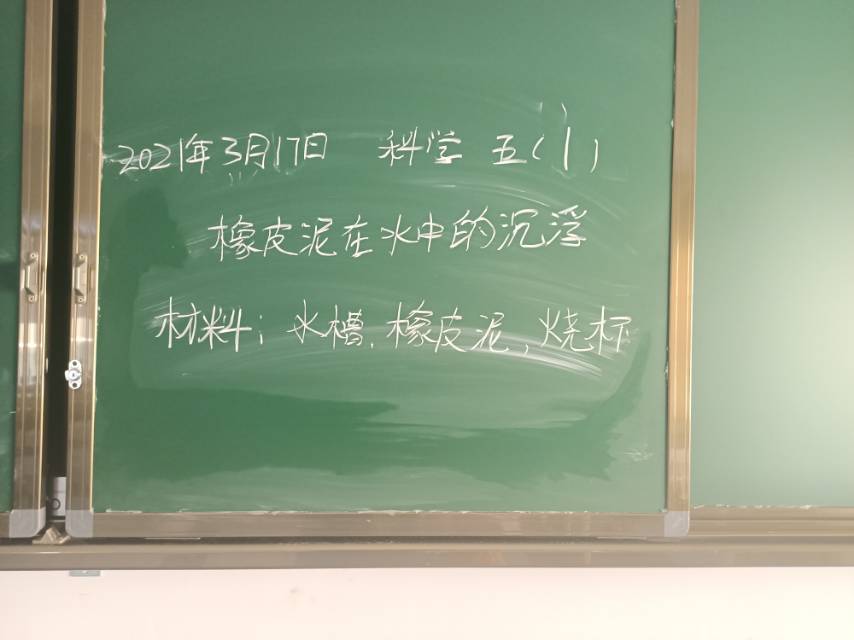 2021年3月17日 科学 五(1)
橡皮泥在水中的沉浮
材料: 水槽, 橡皮泥, 烧杯